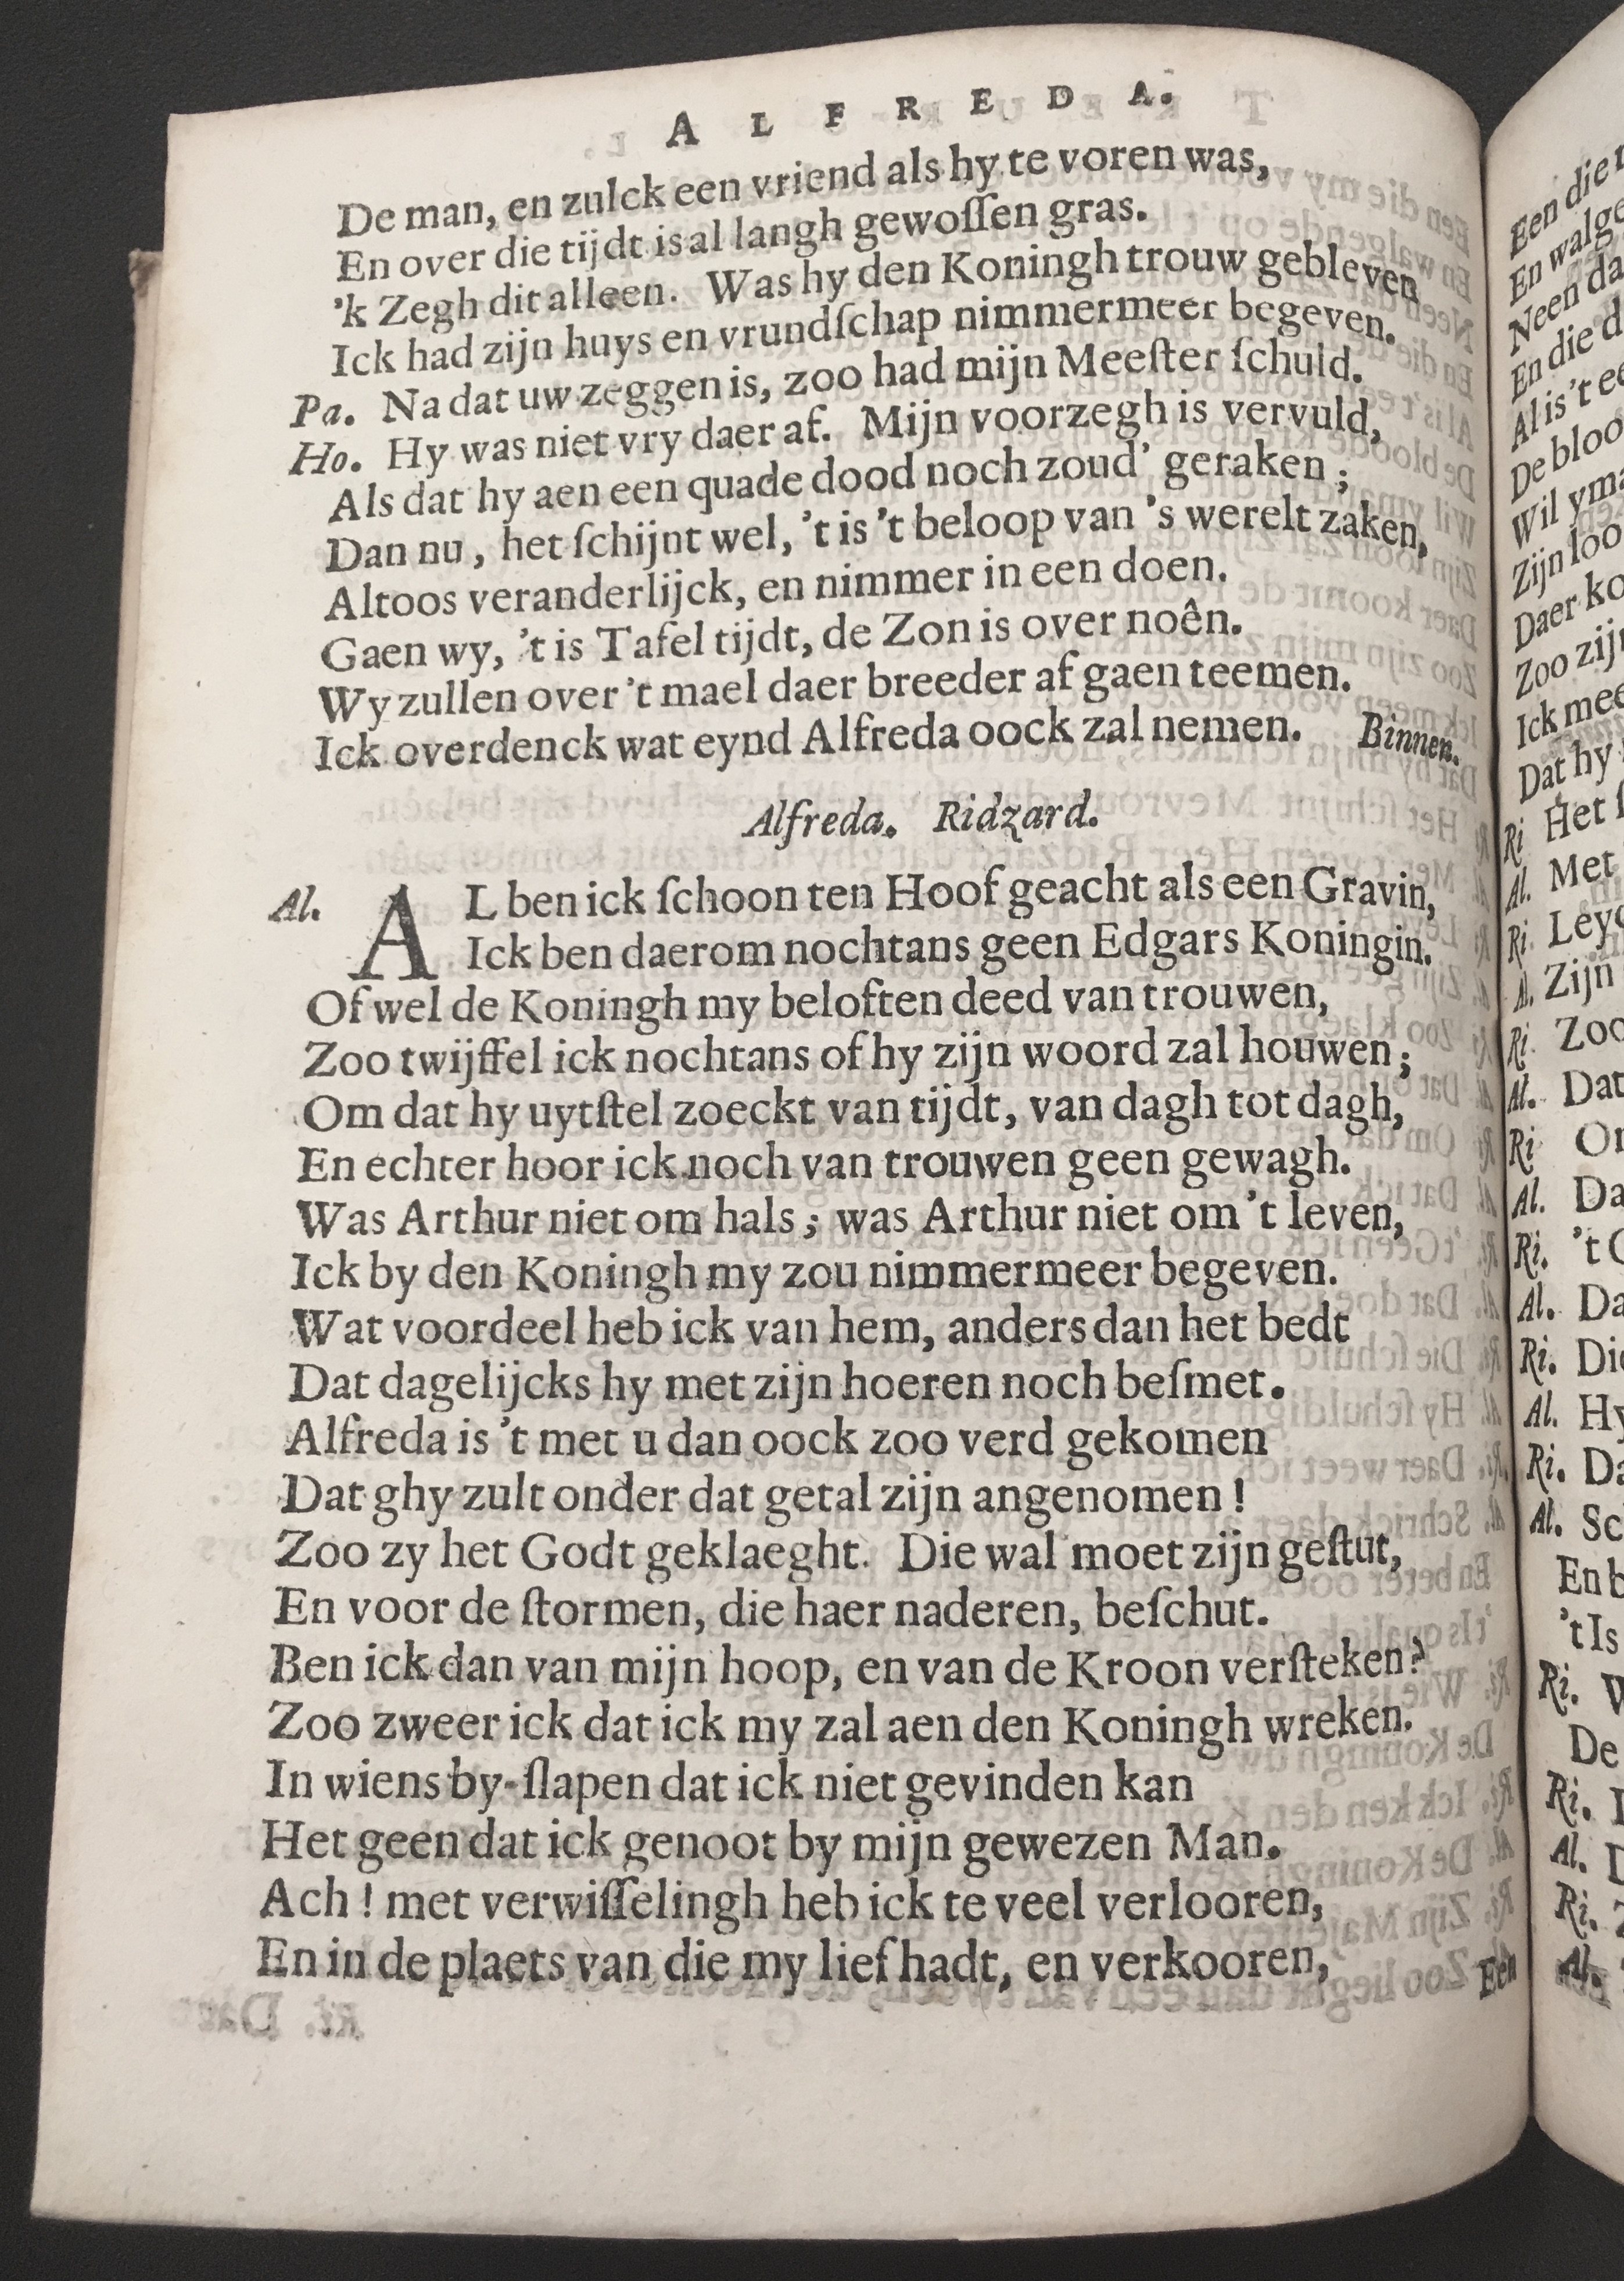 ALFREDA.
De man, en zulck een vriend als hy te voren was,
En over die tijdt is al langh gewoſſen gras.
'k Zegh dit alleen. Was hy den Koningh trouw gebleven
Ick had zijn huys en vrundſchap nimmermeer begeven.
Pa. Na dat uw zeggen is, zoo had mijn Meeſter ſchuld.
Ho. Hy was niet vry daer af. Mijn voorzegh is vervuld,
Als dat hy aen een quade dood noch zoud' geraken ;
Dan nu, het ſchijnt wel, 't is 't beloop van 's werelt zaken,
Altoos veranderlijck, en nimmer in een doen.
Gaen wy, 't is Tafel tijdt, de Zon is over noên.
Wy zullen over 't mael daer breeder af gaen teemen.
Ick overdenck wat eynd Alfreda oock zal nemen. Binnen.
Alfreda. Ridzard.
Al. AL ben ick ſchoon ten Hoof geacht als een Gravin,
Ick ben daerom nochtans geen Edgars Koningin.
Of wel de Koningh my beloften deed van trouwen,
Zoo twijffel ick nochtans of hy zijn woord zal houwen;
Om dat hy uytſtel zoeckt van tijdt, van dagh tot dagh,
En echter hoor ick noch van trouwen geen gewagh.
Was Arthur niet om hals; was Arthur niet om 't leven,
Ick by den Koningh my zou nimmermeer begeven.
Wat voordeel heb ick van hem, anders dan het bedt
Dat dagelijcks hy met zijn hoeren noch beſmet.
Alfreda is 't met u dan oock zoo verd gekomen
Dat ghy zult onder dat getal zijn angenomen !
Zoo zy het Godt geklaeght. Die wal moet zijn geſtut,
En voor de ſtormen, die haer naderen, beſchut.
Ben ick dan van mijn hoop, en van de Kroon verſteken?
Zoo zweer ick dat ick my zal aen den Koningh wreken.
In wiens by-ſlapen dat ick niet gevinden kan
Het geen dat ick genoot by mijn gewezen Man.
Ach ! met verwiſſelingh heb ick te veel verlooren,
En in de plaets van die my lief hadt, en verkooren,
Een